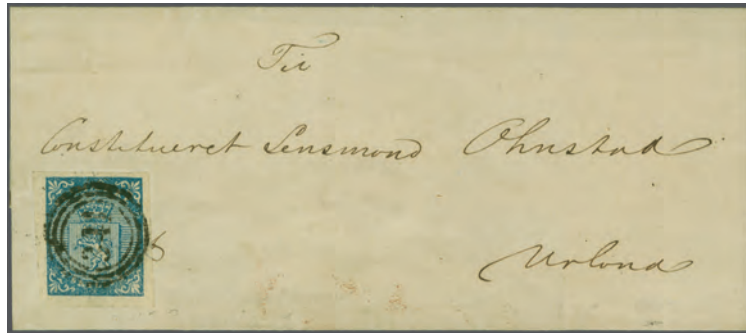 Til
Constitueret Lensmand Ohnstad
Urland